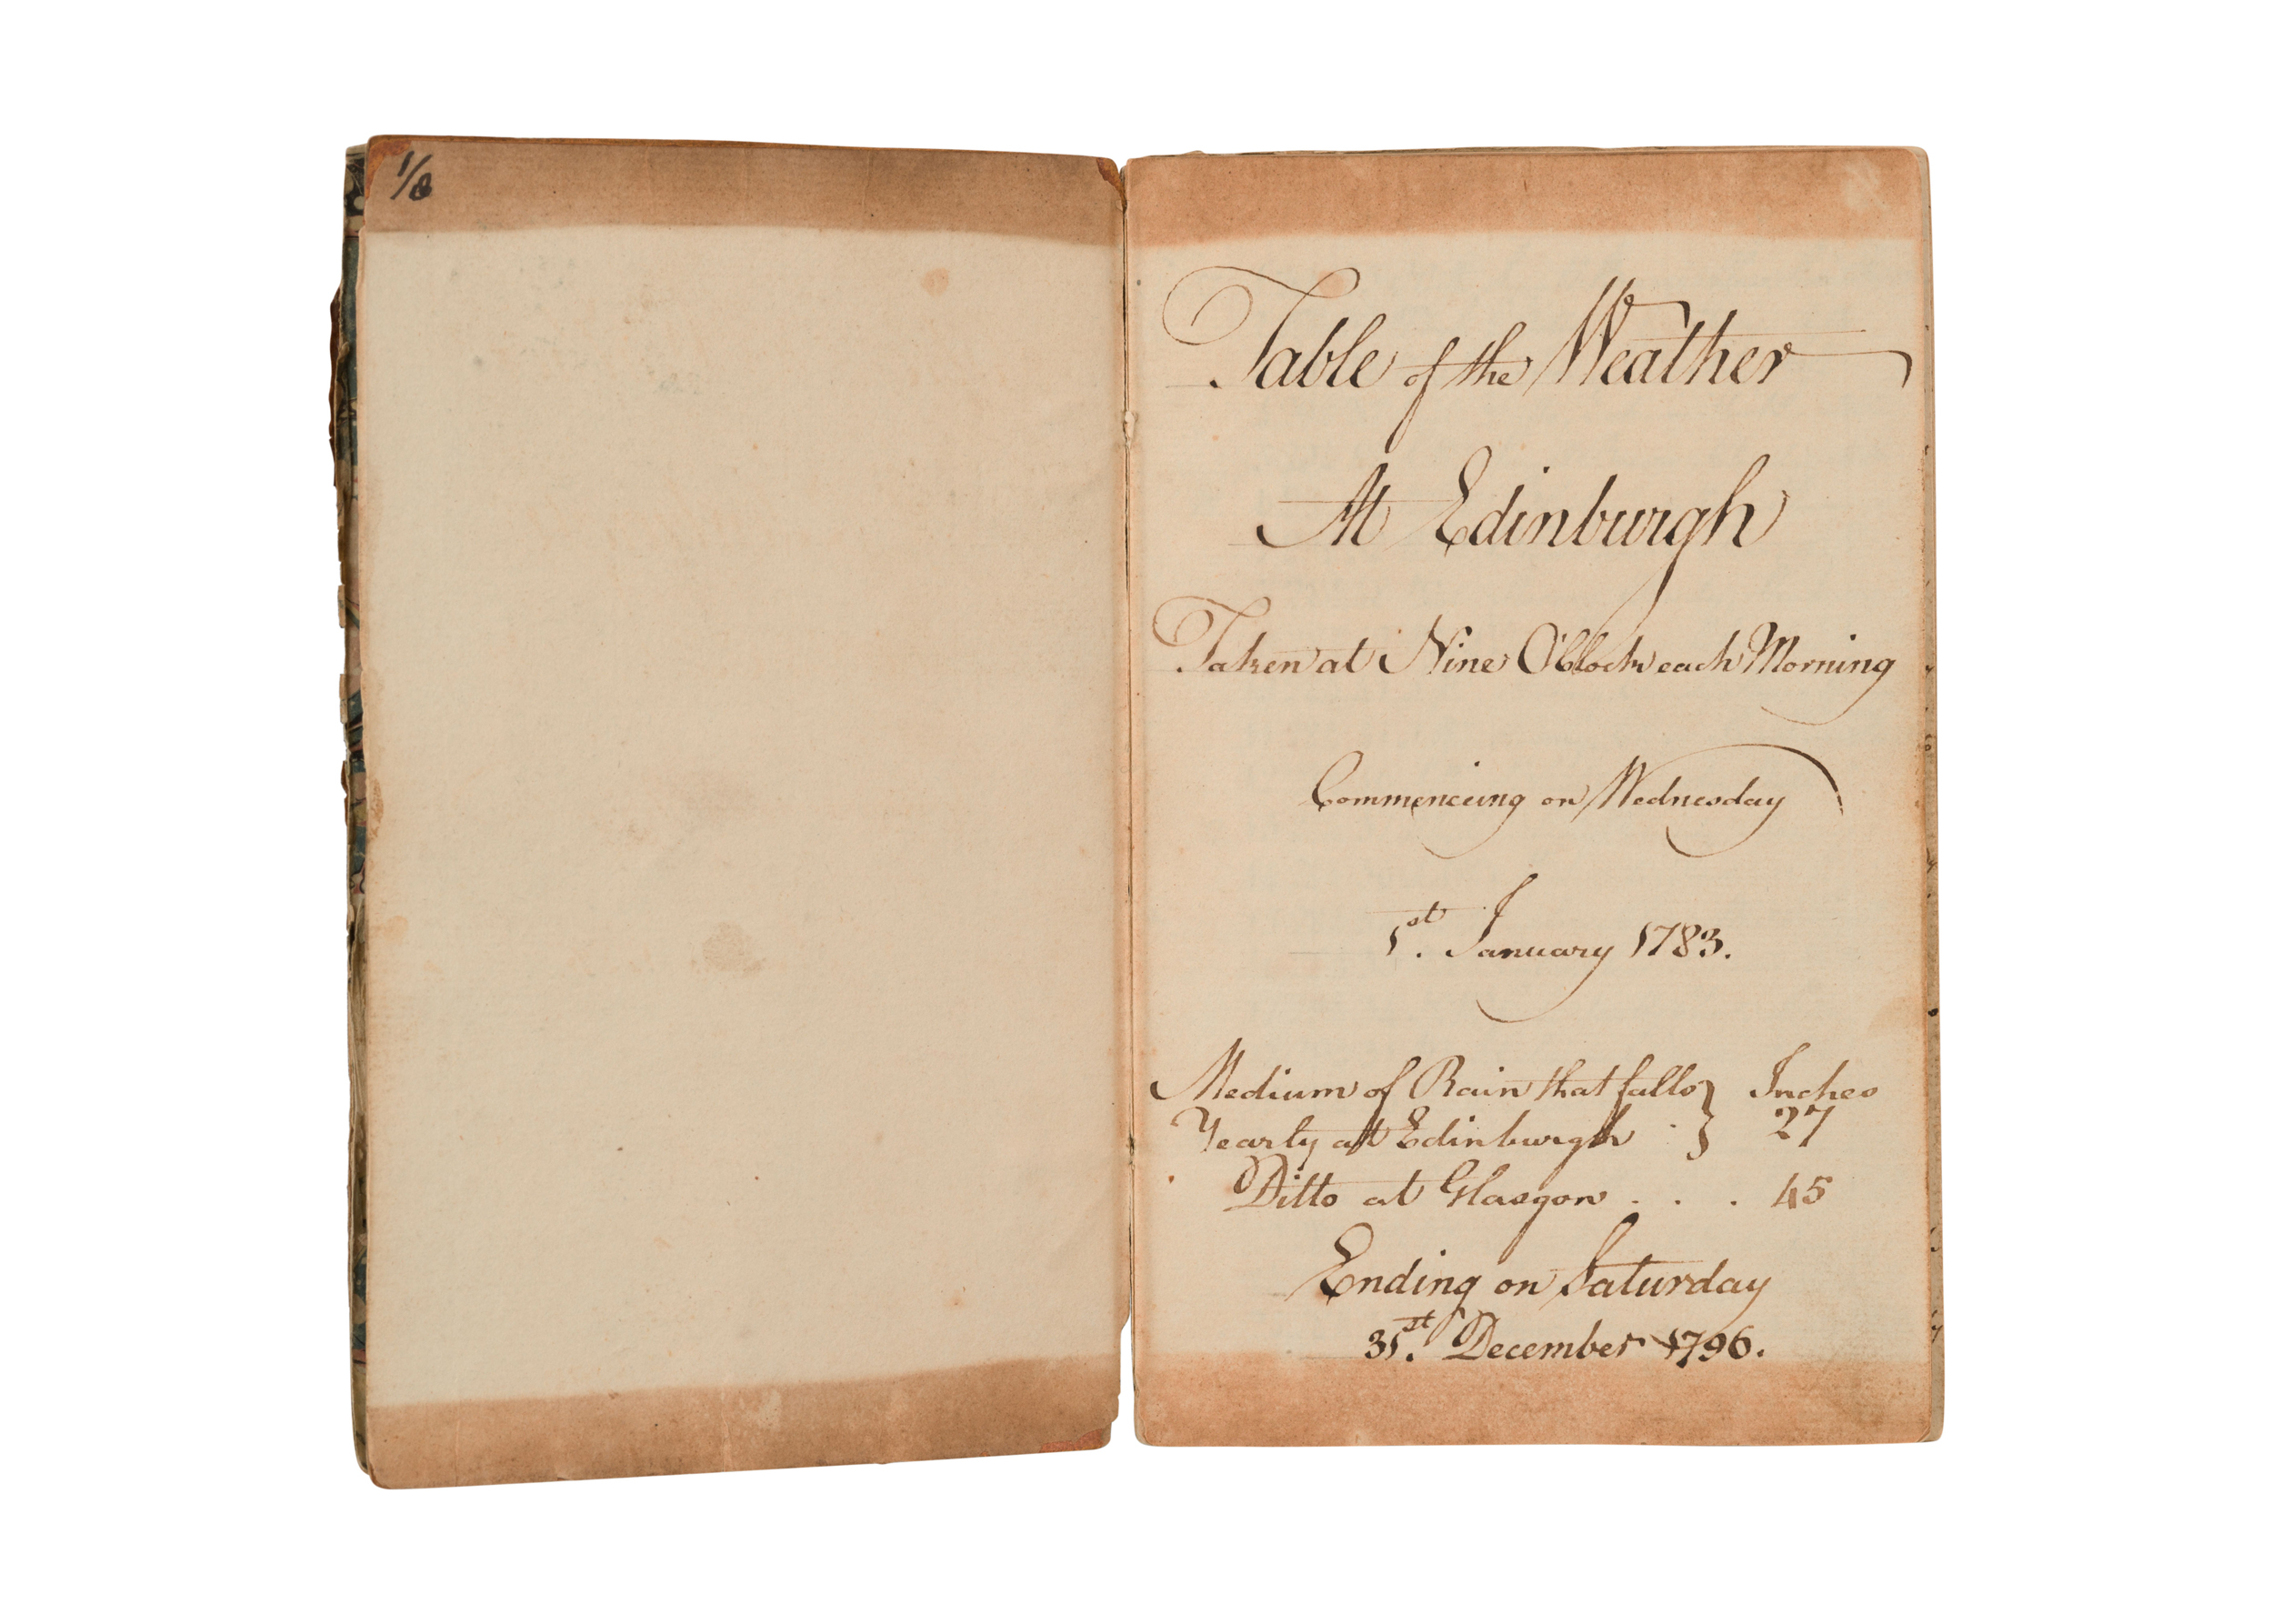 1/8
Table of the Weather
At Edinburgh
Taken at Nine O'Clock each Morning
Commenceing on Wednesday
1st. January 1783.
Medium of Rain that falls } Inches
Yearly at Edinburgh . } 27
Ditto at Glasgow . . . 45
Ending on Saturday
31st. December 1796.